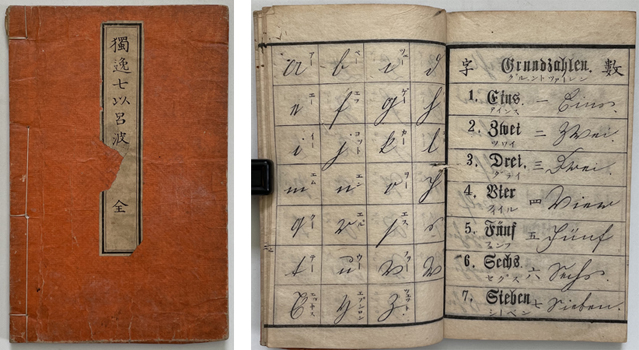 獨逸七以呂波 全
a b c d
e f g h
i j k l
m n o p
q r s s
t u v w
x y z
字 Grundzahlen. 數
1. Eins. 一 Eins.
アインス
2. Zwei 二 Zwei.
ツワイ
3. Drei. 三 Drei.
ドライ
4. Vier 四 Vier
フィイル
5. Fünf 五 Fünf
フンフ
6. Sechs. 六 Sechs.
セグス
7. Sieben 七 Sieben.
シーベン